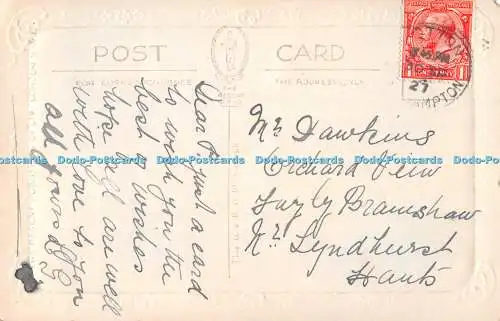 POST CARD
FOR CORRESPONDENCE
THE ADDRESS ONLY
27
Dear P. just a card
to wish you the
best of wishes
hope all are well
with love to you
all yours
Mr Dawkins
Orchard View
Furzly Bramshaw
Nr Lyndhurst
Hants
Dodo-Postcards Dodo-Postcards Dodo-Postcards Dodo-Postcards Dodo-Postcards Dodo-Postcards